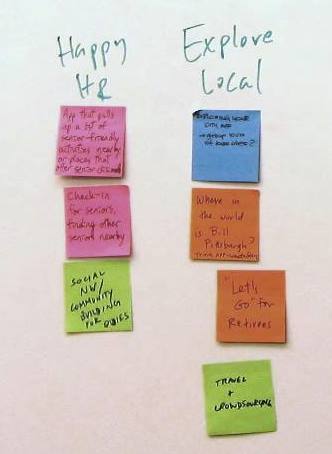 Happy
HR
App that pulls
up a list of
senior-friendly
activities nearby
or places that
offer senior
Check-in
for seniors,
finding other
seniors nearby
SOCIAL
NW/
COMMUNITY
BUILDING
FOR OLDIES
Explore
Local
EXPLORING YOUR
CITY
Where in
the world
is Bill
Pittsburgh?
"Let's
Go" for
Retirees
TRAVEL
+
CROWDSOURCING